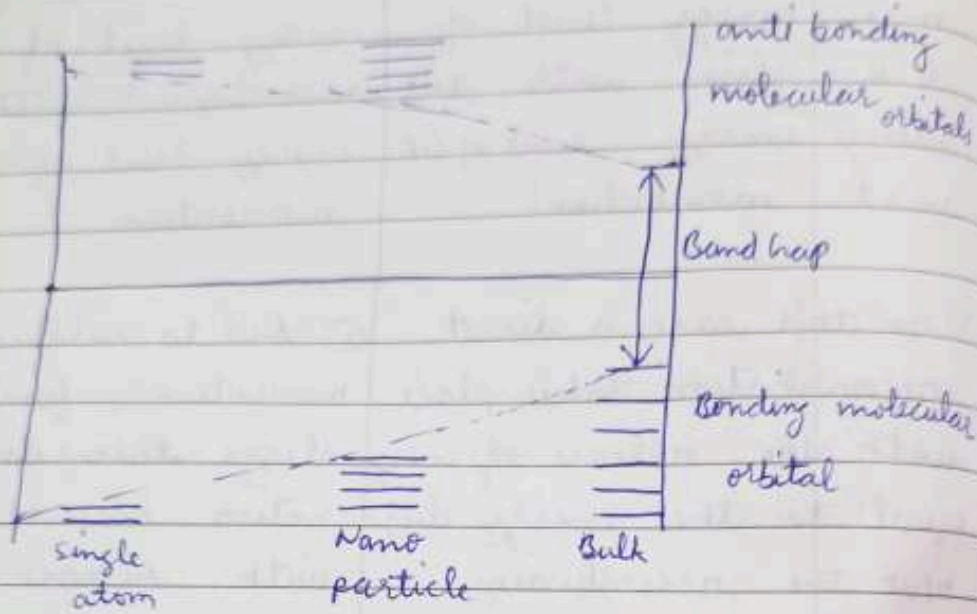 anti bonding
molecular orbitals
Band hap
Bonding molecular
orbital
single
atom
Nano
particle
Bulk